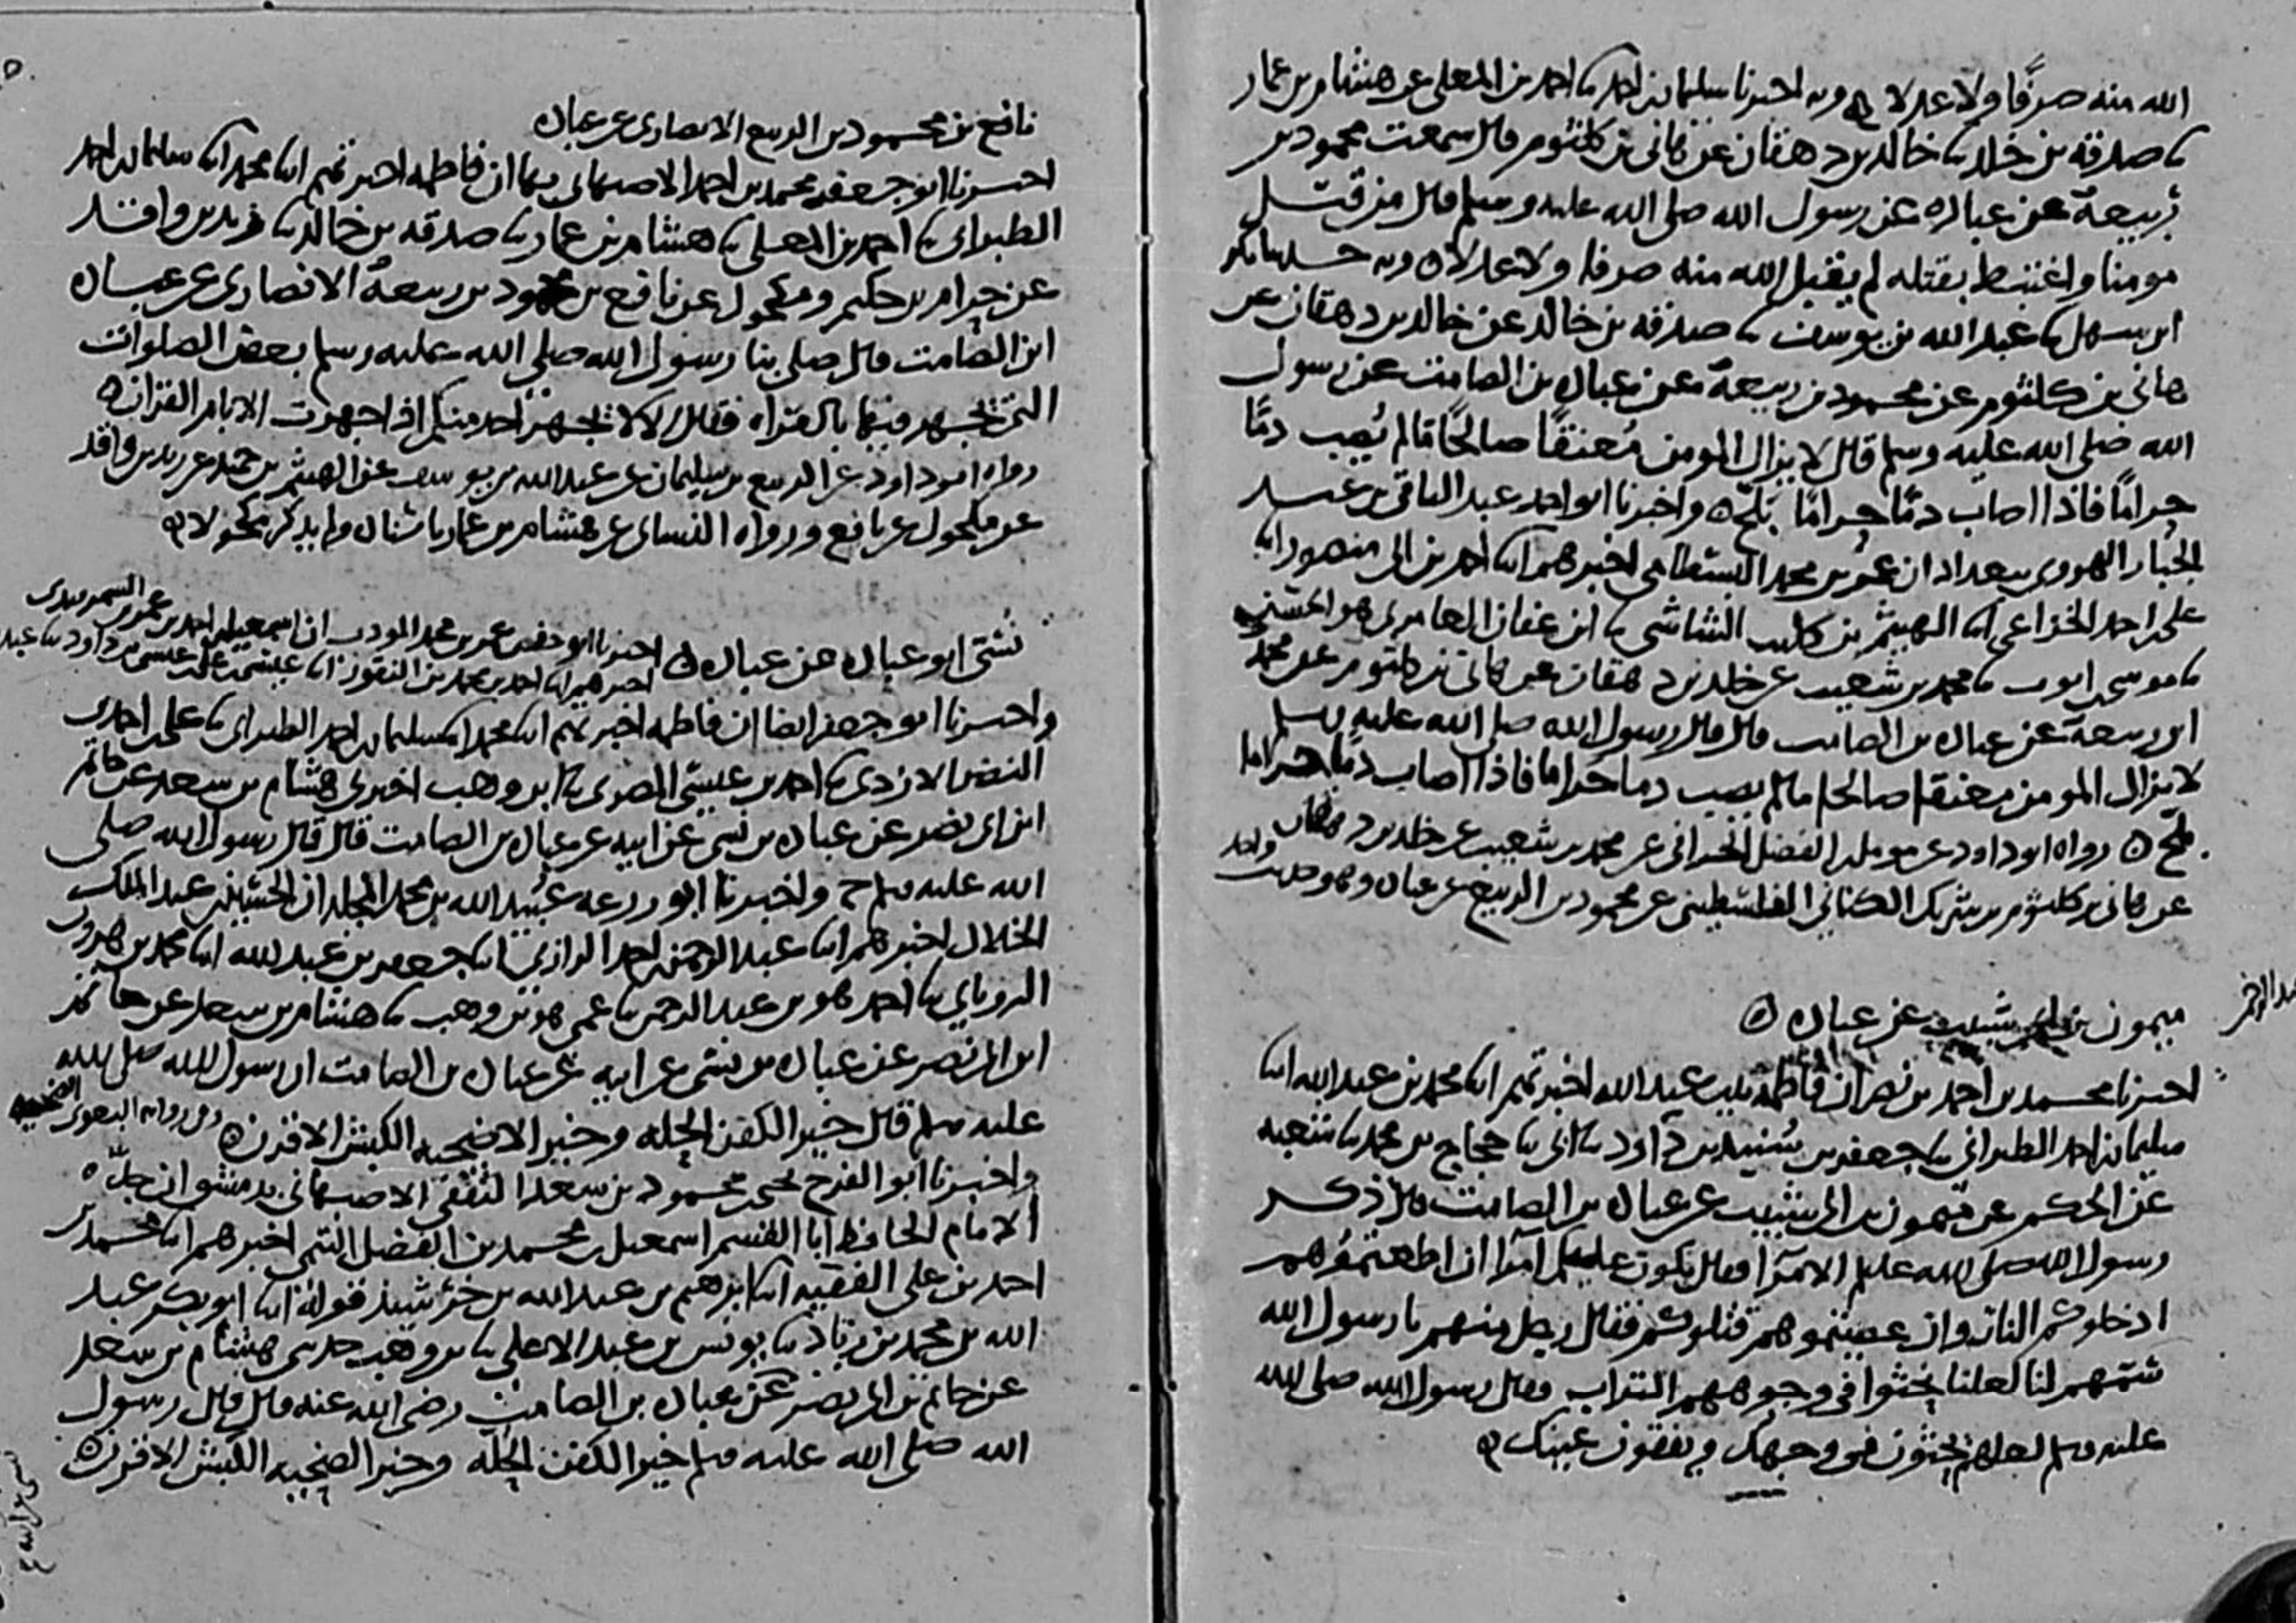 الله منه صرفا ولا عدلا وبه اخبرنا سليمان بن احمد نا احمد بن المعلى عن هشام بن عمار
نا صدقة بن خلد نا خالد بن دهقان عن هانى بن كلثوم قال سمعت محمود بن
ربيعة عن عباده عن رسول الله صلى الله عليه وسلم قال من قتل
مومنا واغتبط بقتله لم يقبل الله منه صرفا ولا عدلا وبه حدثنا بكر
ابن سهل نا عبد الله بن يوسف نا صدقة بن خالد عن خالد بن دهقان عن
هانى بن كلثوم عن محمود بن ربيعة عن عباده بن الصامت عن رسول
الله صلى الله عليه وسلم قال لا يزال المومن مُعنقًا صالحًا ما لم يُصِب دمًا
حرامًا فاذا اصاب دمًا حرامًا بَلَّح واخبرنا ابو احمد عبد الباقى بن عبد
الجبار الهروى ببغداد ان عمر بن محمد البسطامى اخبرهم ابنا احمد بن ابى منصور ابنا
على بن احمد الخزاعى ابنا الهيثم بن كليب الشاشى نا ابن عفان العامرى هو الحسن
نا موسى بن ايوب نا محمد بن شعيب عن خلد بن دهقان عن هانى بن كلثوم عن محمود
ابن ربيعة عن عباده بن الصامت قال قال رسول الله صلى الله عليه وسلم
لا يزال المومن معنقا صالحا ما لم يصب دما حراما فاذا اصاب دمًا حراما
بلح رواه ابو داود عن مومل بن الفضل الحرانى عن محمد بن شعيب عن خلد بن دهقان
عن هانى بن كلثوم بن شريك الكنانى الفلسطينى عن محمود بن الربيع عن عباده وهو حديث واحد
ميمون بن ابى شبيب عن عباده
اخبرنا محمد بن احمد بن نصر ان فاطمة بنت عبد الله اخبرتهم ابنا محمد بن عبد الله ابنا
سليمان بن احمد الطبرانى نا جعفر بن سُنيد بن داود نا ابى نا حجاج بن محمد نا شعبه
عن الحكم عن ميمون بن ابى شبيب عن عباده بن الصامت قال ذكر
رسول الله صلى الله عليه وسلم الامرآ فقال يكون عليكم امرآ ان اطعتموهم
ادخلوكم النار وان عصيتموهم قتلوكم فقال رجل منهم يا رسول الله
سَمِّهم لنا لعلنا نحثوا فى وجوههم التراب فقال رسول الله صلى الله
عليه وسلم لعلهم يحثون فى وجهك ويفقون عينك
نافع بن محمود بن الربيع الانصارى عن عباده
اخبرنا ابو جعفر محمد بن احمد الاصبهانى بها ان فاطمه اخبرتهم ابنا محمد ابنا سليمان بن احمد
الطبرانى نا احمد بن المعلى نا هشام بن عمار نا صدقه بن خالد نا زيد بن واقد
عن حرام بن حكيم ومكحول عن نافع بن محمود بن ربيعة الانصارى عن عباده
ابن الصامت قال صلى بنا رسول الله صلى الله عليه وسلم بعض الصلوات
التى يجهر فيها بالقراه فقال الا لا يجهرن احد منكم اذا جهرت الا بام القران
رواه ابو داود عن الربيع بن سليمان عن عبد الله بن يوسف عن الهيثم بن حميد عن زيد بن واقد
عن مكحول عن نافع ورواه النساى عن هشام بن عمار باسناده ولم يذكر مكحولا
نُسَىّ ابو عباده عن عباده اخبرنا ابو حفص عمر بن محمد المودب ان اسمعيل بن احمد بن عمر السمرقندى
اخبرهم ابنا احمد بن محمد بن النقور ابنا عيسى بن على بن عيسى بن داود نا عبد
واخبرنا ابو جعفر ايضا ان فاطمه اخبرتهم ابنا محمد ابنا سليمان بن احمد الطبرانى نا على بن احمد بن
النضر الازدى نا احمد بن عيسى المصرى نا ابن وهب اخبرنى هشام بن سعد عن حاتم
ابن ابى نصر عن عباده بن نسى عن ابيه عن عباده بن الصامت قال قال رسول الله صلى
الله عليه وسلم ح واخبرنا ابو زرعه عبيد الله بن محمد ان الحسين بن عبد الملك
الخلال اخبرهم ابنا عبد الرحمن بن احمد الرازى ابنا جعفر بن عبد الله ابنا محمد بن هرون
الرويانى نا احمد هو بن عبد الرحمن نا عمى هو بن وهب نا هشام بن سعد عن حاتم
ابن ابى نصر عن عباده بن نسى عن ابيه عن عباده بن الصامت ان رسول الله صلى الله
عليه وسلم قال خير الكفن الحله وخير الاضحيه الكبش الاقرن وفى روايه البغوى الضحيه
واخبرنا ابو الفرح يحيى بن محمود بن سعد الثقفى الاصبهانى بدمشق ان جدّه
الامام الحافظ ابا القسم اسمعيل بن محمد بن الفضل التيمى اخبرهم ابنا محمد بن
احمد بن على الفقيه ابنا ابرهيم بن عبد الله بن خرشيذ قوله ابنا ابو بكر عبد
الله بن محمد بن زياد نا يونس بن عبد الاعلى نا بن وهب حدثنى هشام بن سعد
عن حاتم بن ابى نصر عن عباده بن الصامت رضى الله عنه قال قال رسول
الله صلى الله عليه وسلم خير الكفن الحله وخير الضحيه الكبش الاقرن